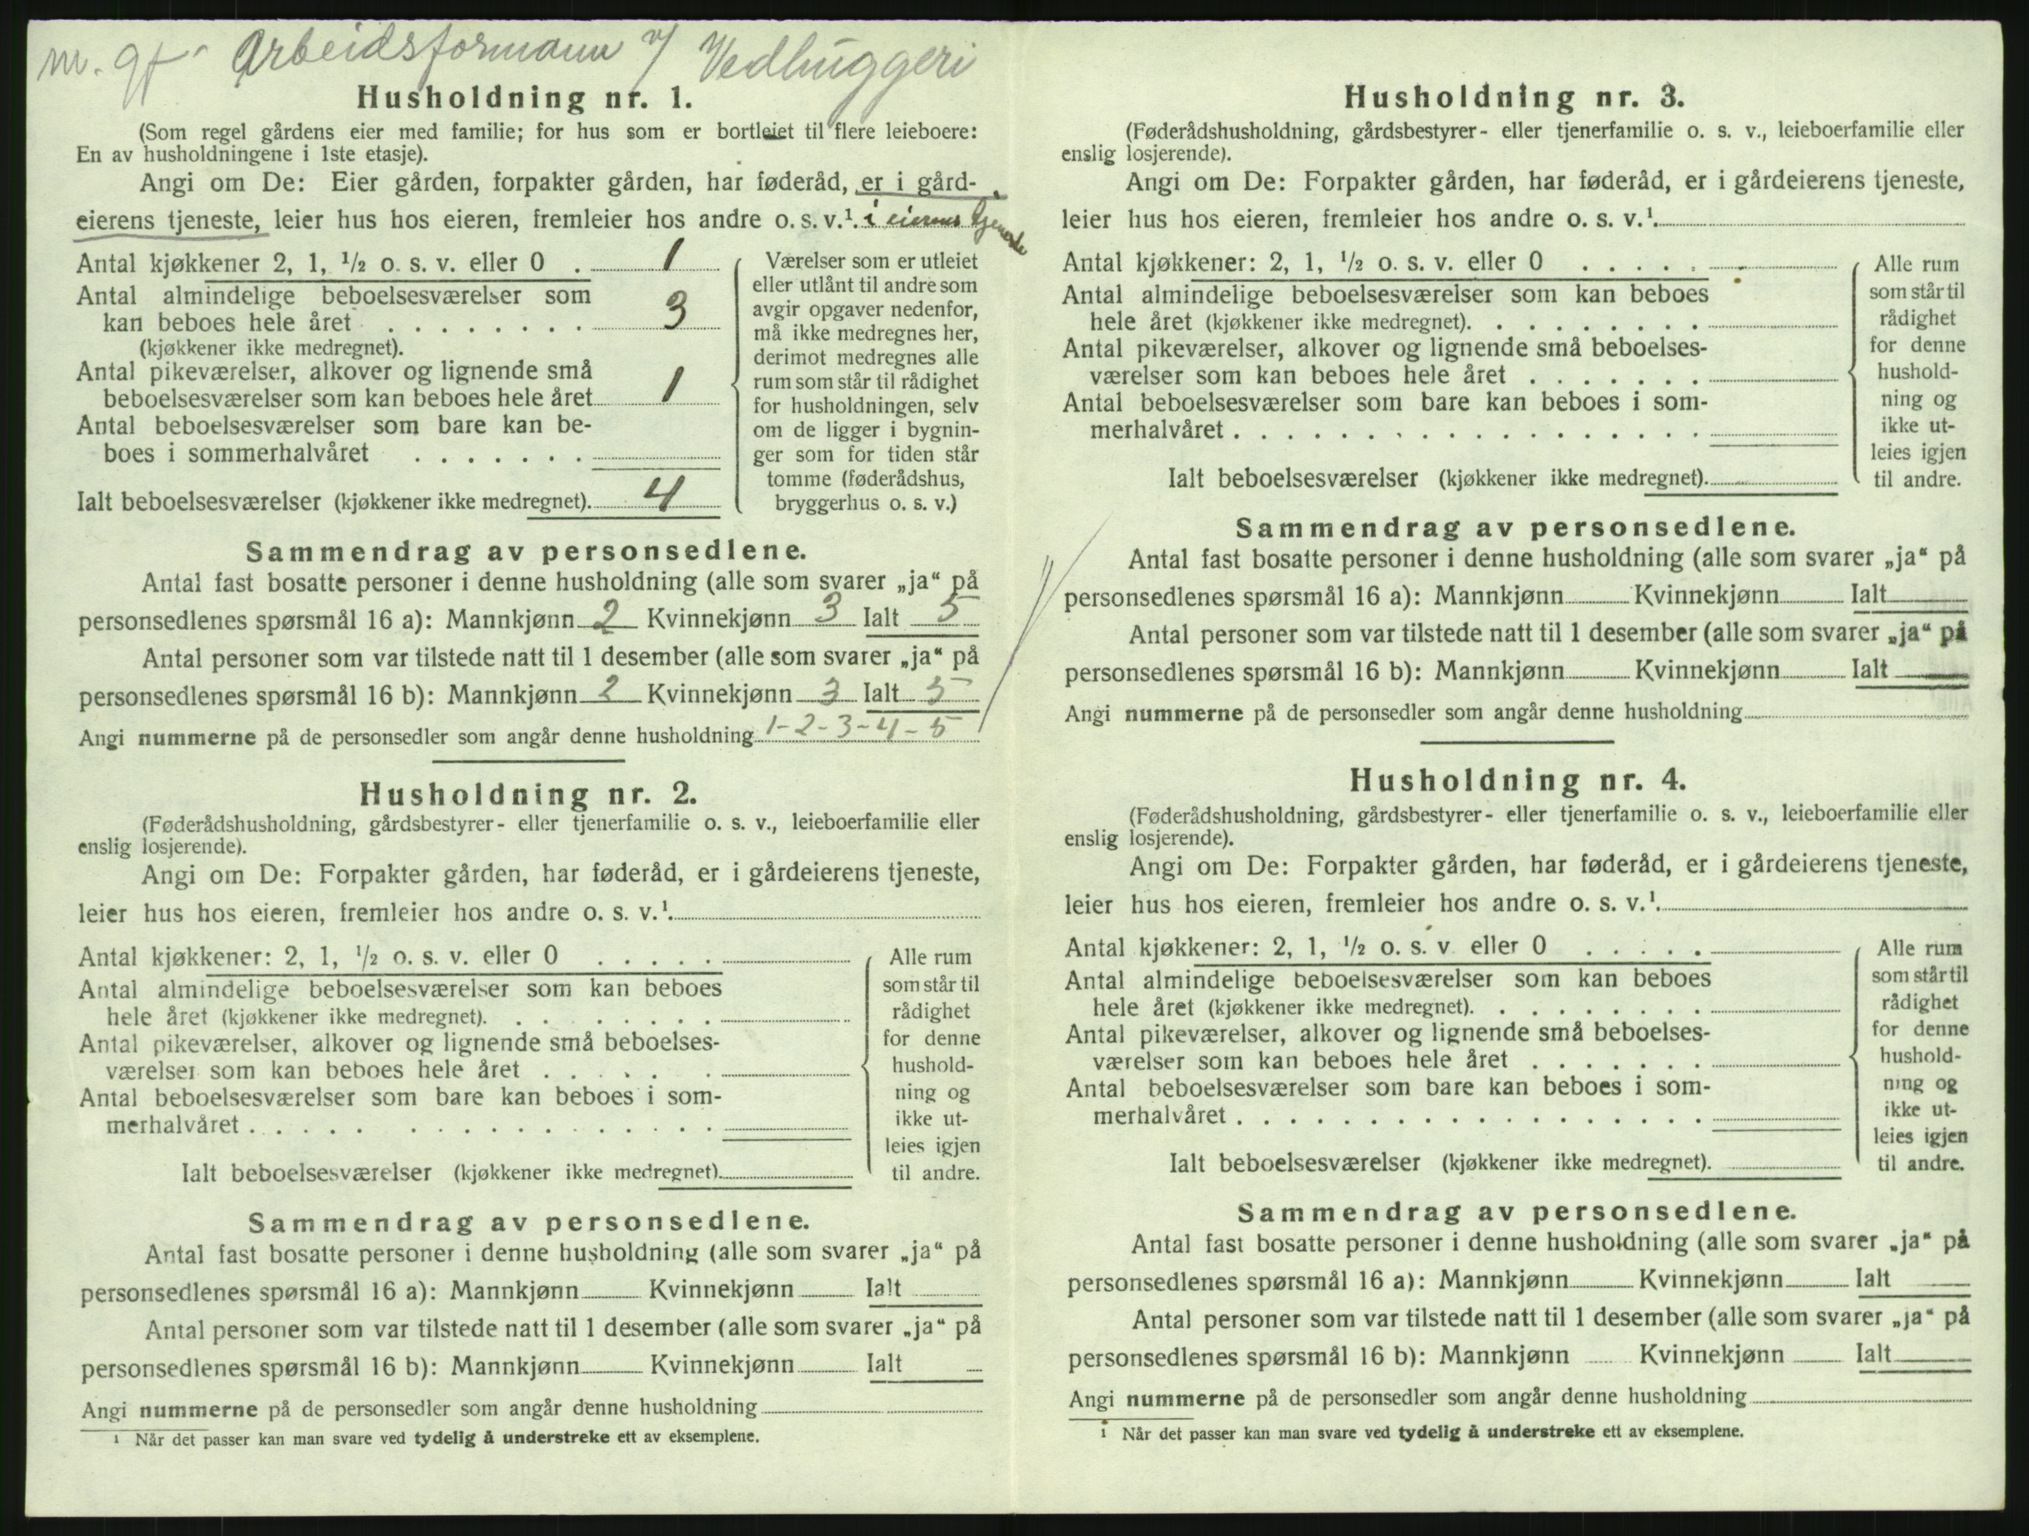 Arbeidsformann v/ Vedhuggeri
Husholdning nr. 1.
(Som regel gårdens eier med familie; for hus som er bortleiet til flere leieboere:
En av husholdningene i 1ste etasje).
Angi om De: Eier gården, forpakter gården, har føderåd, er i gård-
eierens tjeneste, leier hus hos eieren, fremleier hos andre o. s. v.¹. i eierens tjeneste
Antal kjøkkener 2, 1, ½ o. s. v. eller 0 . 1
Antal almindelige beboelsesværelser som
kan beboes hele året . . . . . . . . 3
(kjøkkener ikke medregnet).
Antal pikeværelser, alkover og lignende små
beboelsesværelser som kan beboes hele året 1
Antal beboelsesværelser som bare kan be-
boes i sommerhalvåret . . . . . . .
Ialt beboelsesværelser (kjøkkener ikke medregnet). 4
Værelser som er utleiet
eller utlånt til andre som
avgir opgaver nedenfor,
må ikke medregnes her,
derimot medregnes alle
rum som står til rådighet
for husholdningen, selv
om de ligger i bygnin-
ger som for tiden står
tomme (føderådshus,
bryggerhus o. s. v.)
Sammendrag av personsedlene.
Antal fast bosatte personer i denne husholdning (alle som svarer „ja“ på
personsedlenes spørsmål 16 a): Mannkjønn 2 Kvinnekjønn 3 Ialt 5
Antal personer som var tilstede natt til 1 desember (alle som svarer „ja“ på
personsedlenes spørsmål 16 b): Mannkjønn 2 Kvinnekjønn 3 Ialt 5
Angi nummerne på de personsedler som angår denne husholdning 1-2-3-4-5
Husholdning nr. 2.
(Føderådshusholdning, gårdsbestyrer- eller tjenerfamilie o. s. v., leieboerfamilie eller
enslig losjerende).
Angi om De: Forpakter gården, har føderåd, er i gårdeierens tjeneste,
leier hus hos eieren, fremleier hos andre o. s. v.¹.
Antal kjøkkener: 2, 1, ½ o. s. v. eller 0 . . . . .
Antal almindelige beboelsesværelser som kan beboes
hele året (kjøkkener ikke medregnet). . . . . . . .
Antal pikeværelser, alkover og lignende små beboelses-
værelser som kan beboes hele året . . . . .
Antal beboelsesværelser som bare kan beboes i som-
merhalvåret . . . . . . . . . . . . . . .
Ialt beboelsesværelser (kjøkkener ikke medregnet).
Alle rum
som står til
rådighet
for denne
hushold-
ning og
ikke ut-
leies igjen
til andre.
Sammendrag av personsedlene.
Antal fast bosatte personer i denne husholdning (alle som svarer „ja“ på
personsedlenes spørsmål 16 a): Mannkjønn Kvinnekjønn Ialt
Antal personer som var tilstede natt til 1 desember (alle som svarer „ja“ på
personsedlenes spørsmål 16 b): Mannkjønn Kvinnekjønn Ialt
Angi nummerne på de personsedler som angår denne husholdning
¹ Når det passer kan man svare ved tydelig å understreke ett av eksemplene.
Husholdning nr. 3.
(Føderådshusholdning, gårdsbestyrer- eller tjenerfamilie o. s. v., leieboerfamilie eller
enslig losjerende).
Angi om De: Forpakter gården, har føderåd, er i gårdeierens tjeneste,
leier hus hos eieren, fremleier hos andre o. s. v.¹.
Antal kjøkkener: 2, 1, ½ o. s. v. eller 0 . . . . .
Antal almindelige beboelsesværelser som kan beboes
hele året (kjøkkener ikke medregnet). . . . . . . . .
Antal pikeværelser, alkover og lignende små beboelses-
værelser som kan beboes hele året . . . . . . .
Antal beboelsesværelser som bare kan beboes i som-
merhalvåret . . . . . . . . . . . . . . . . .
Ialt beboelsesværelser (kjøkkener ikke medregnet).
Alle rum
som står til
rådighet
for denne
hushold-
ning og
ikke ut-
leies igjen
til andre.
Sammendrag av personsedlene.
Antal fast bosatte personer i denne husholdning (alle som svarer „ja“ på
personsedlenes spørsmål 16 a): Mannkjønn Kvinnekjønn Ialt
Antal personer som var tilstede natt til 1 desember (alle som svarer „ja“ på
personsedlenes spørsmål 16 b): Mannkjønn Kvinnekjønn Ialt
Angi nummerne på de personsedler som angår denne husholdning
Husholdning nr. 4.
(Føderådshusholdning, gårdsbestyrer- eller tjenerfamilie o. s. v., leieboerfamilie eller
enslig losjerende).
Angi om De: Forpakter gården, har føderåd, er i gårdeierens tjeneste,
leier hus hos eieren, fremleier hos andre o. s. v.¹.
Antal kjøkkener: 2, 1, ½ o. s. v eller 0 . . . . .
Antal almindelige beboelsesværelser som kan beboes
hele året (kjøkkener ikke medregnet). . . . . . . . .
Antal pikeværelser, alkover og lignende små beboelses-
værelser som kan beboes hele året . . . . . . .
Antal beboelsesværelser som bare kan beboes i som-
merhalvåret . . . . . . . . . . . . . . . . .
Ialt beboelsesværelser (kjøkkener ikke medregnet).
Alle rum
som står til
rådighet
for denne
hushold-
ning og
ikke ut-
leies igjen
til andre.
Sammendrag av personsedlene.
Antal fast bosatte personer i denne husholdning (alle som svarer „ja“ på
personsedlenes spørsmål 16 a): Mannkjønn Kvinnekjønn Ialt
Antal personer som var tilstede natt til 1 desember (alle som svarer „ja“ på
personsedlenes spørsmål 16 b): Mannkjønn Kvinnekjønn Ialt
Angi nummerne på de personsedler som angår denne husholdning
¹ Når det passer kan man svare ved tydelig å understreke ett av eksemplene.